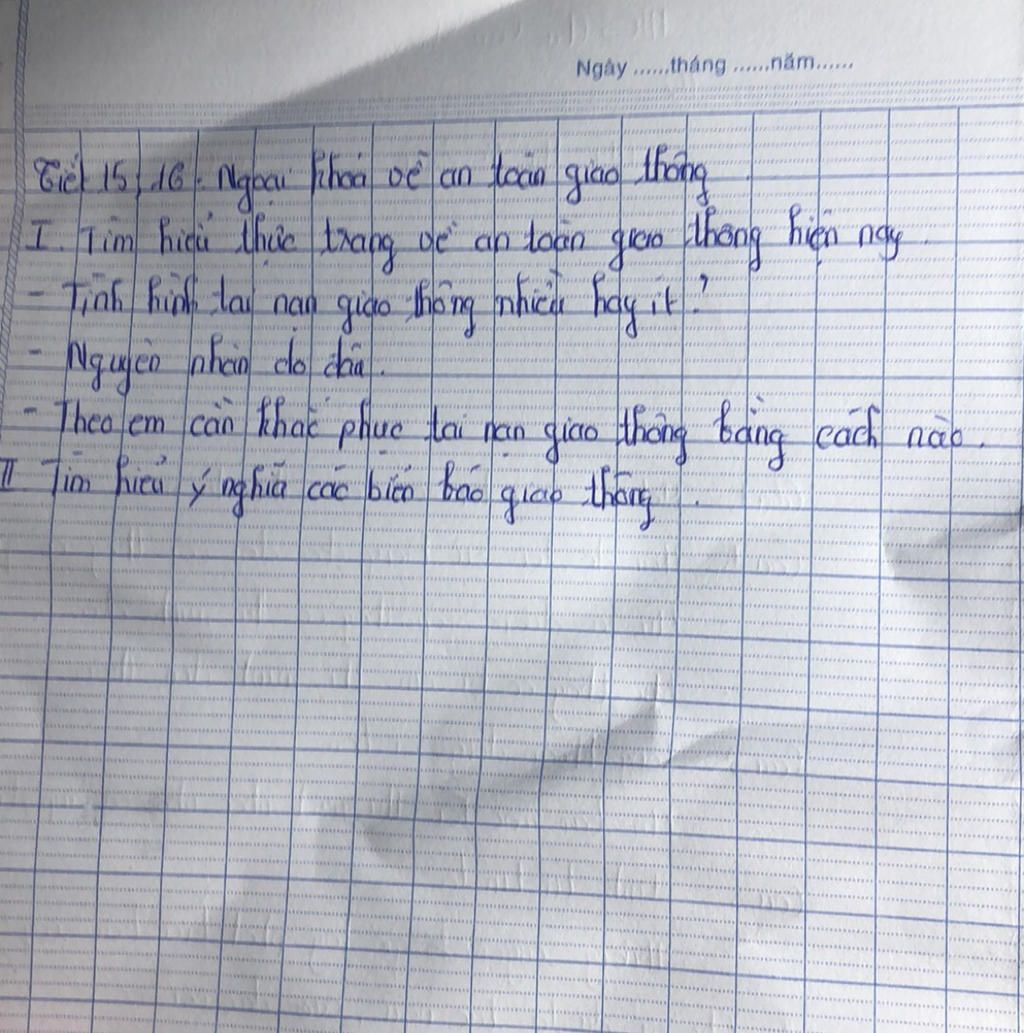 Ngày ......tháng ......năm......
Tiết 15, 16. Ngoại khoá về an toàn giao thông
I. Tìm hiểu thực trạng về an toàn giao thông hiện nay.
- Tình hình tai nạn giao thông nhiều hay ít?
- Nguyên nhân do đâu.
- Theo em cần khắc phục tai nạn giao thông bằng cách nào.
II Tìm hiểu ý nghĩa các biển báo giao thông.